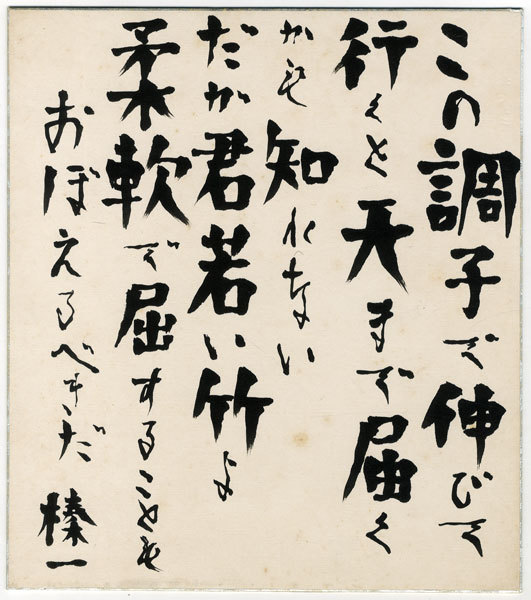 この調子で伸びて
行くと天まで届く
かも知れない
だが君若い竹よ
柔軟で屈することも
おぼえるべきだ
榛一